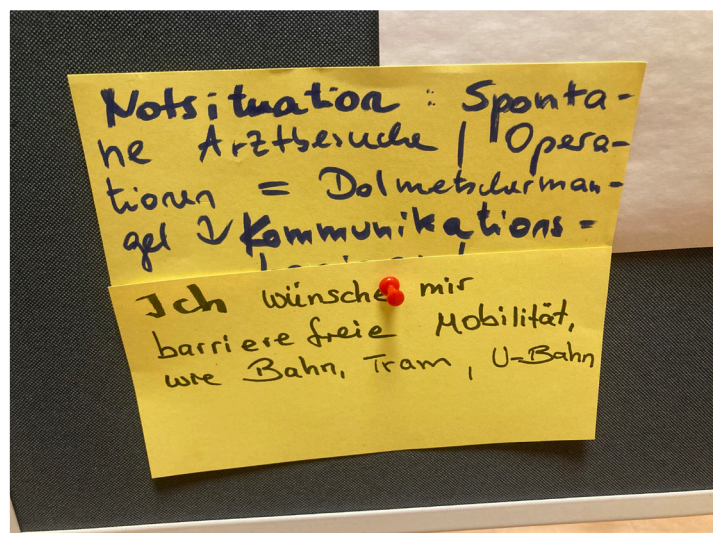 Notsituation : Sponta-
ne Arztbesuche / Opera-
tionen = Dolmetscherman-
gel ↓ Kommunikations-
Ich wünsche mir
barriere freie Mobilität,
wie Bahn, Tram, U-Bahn